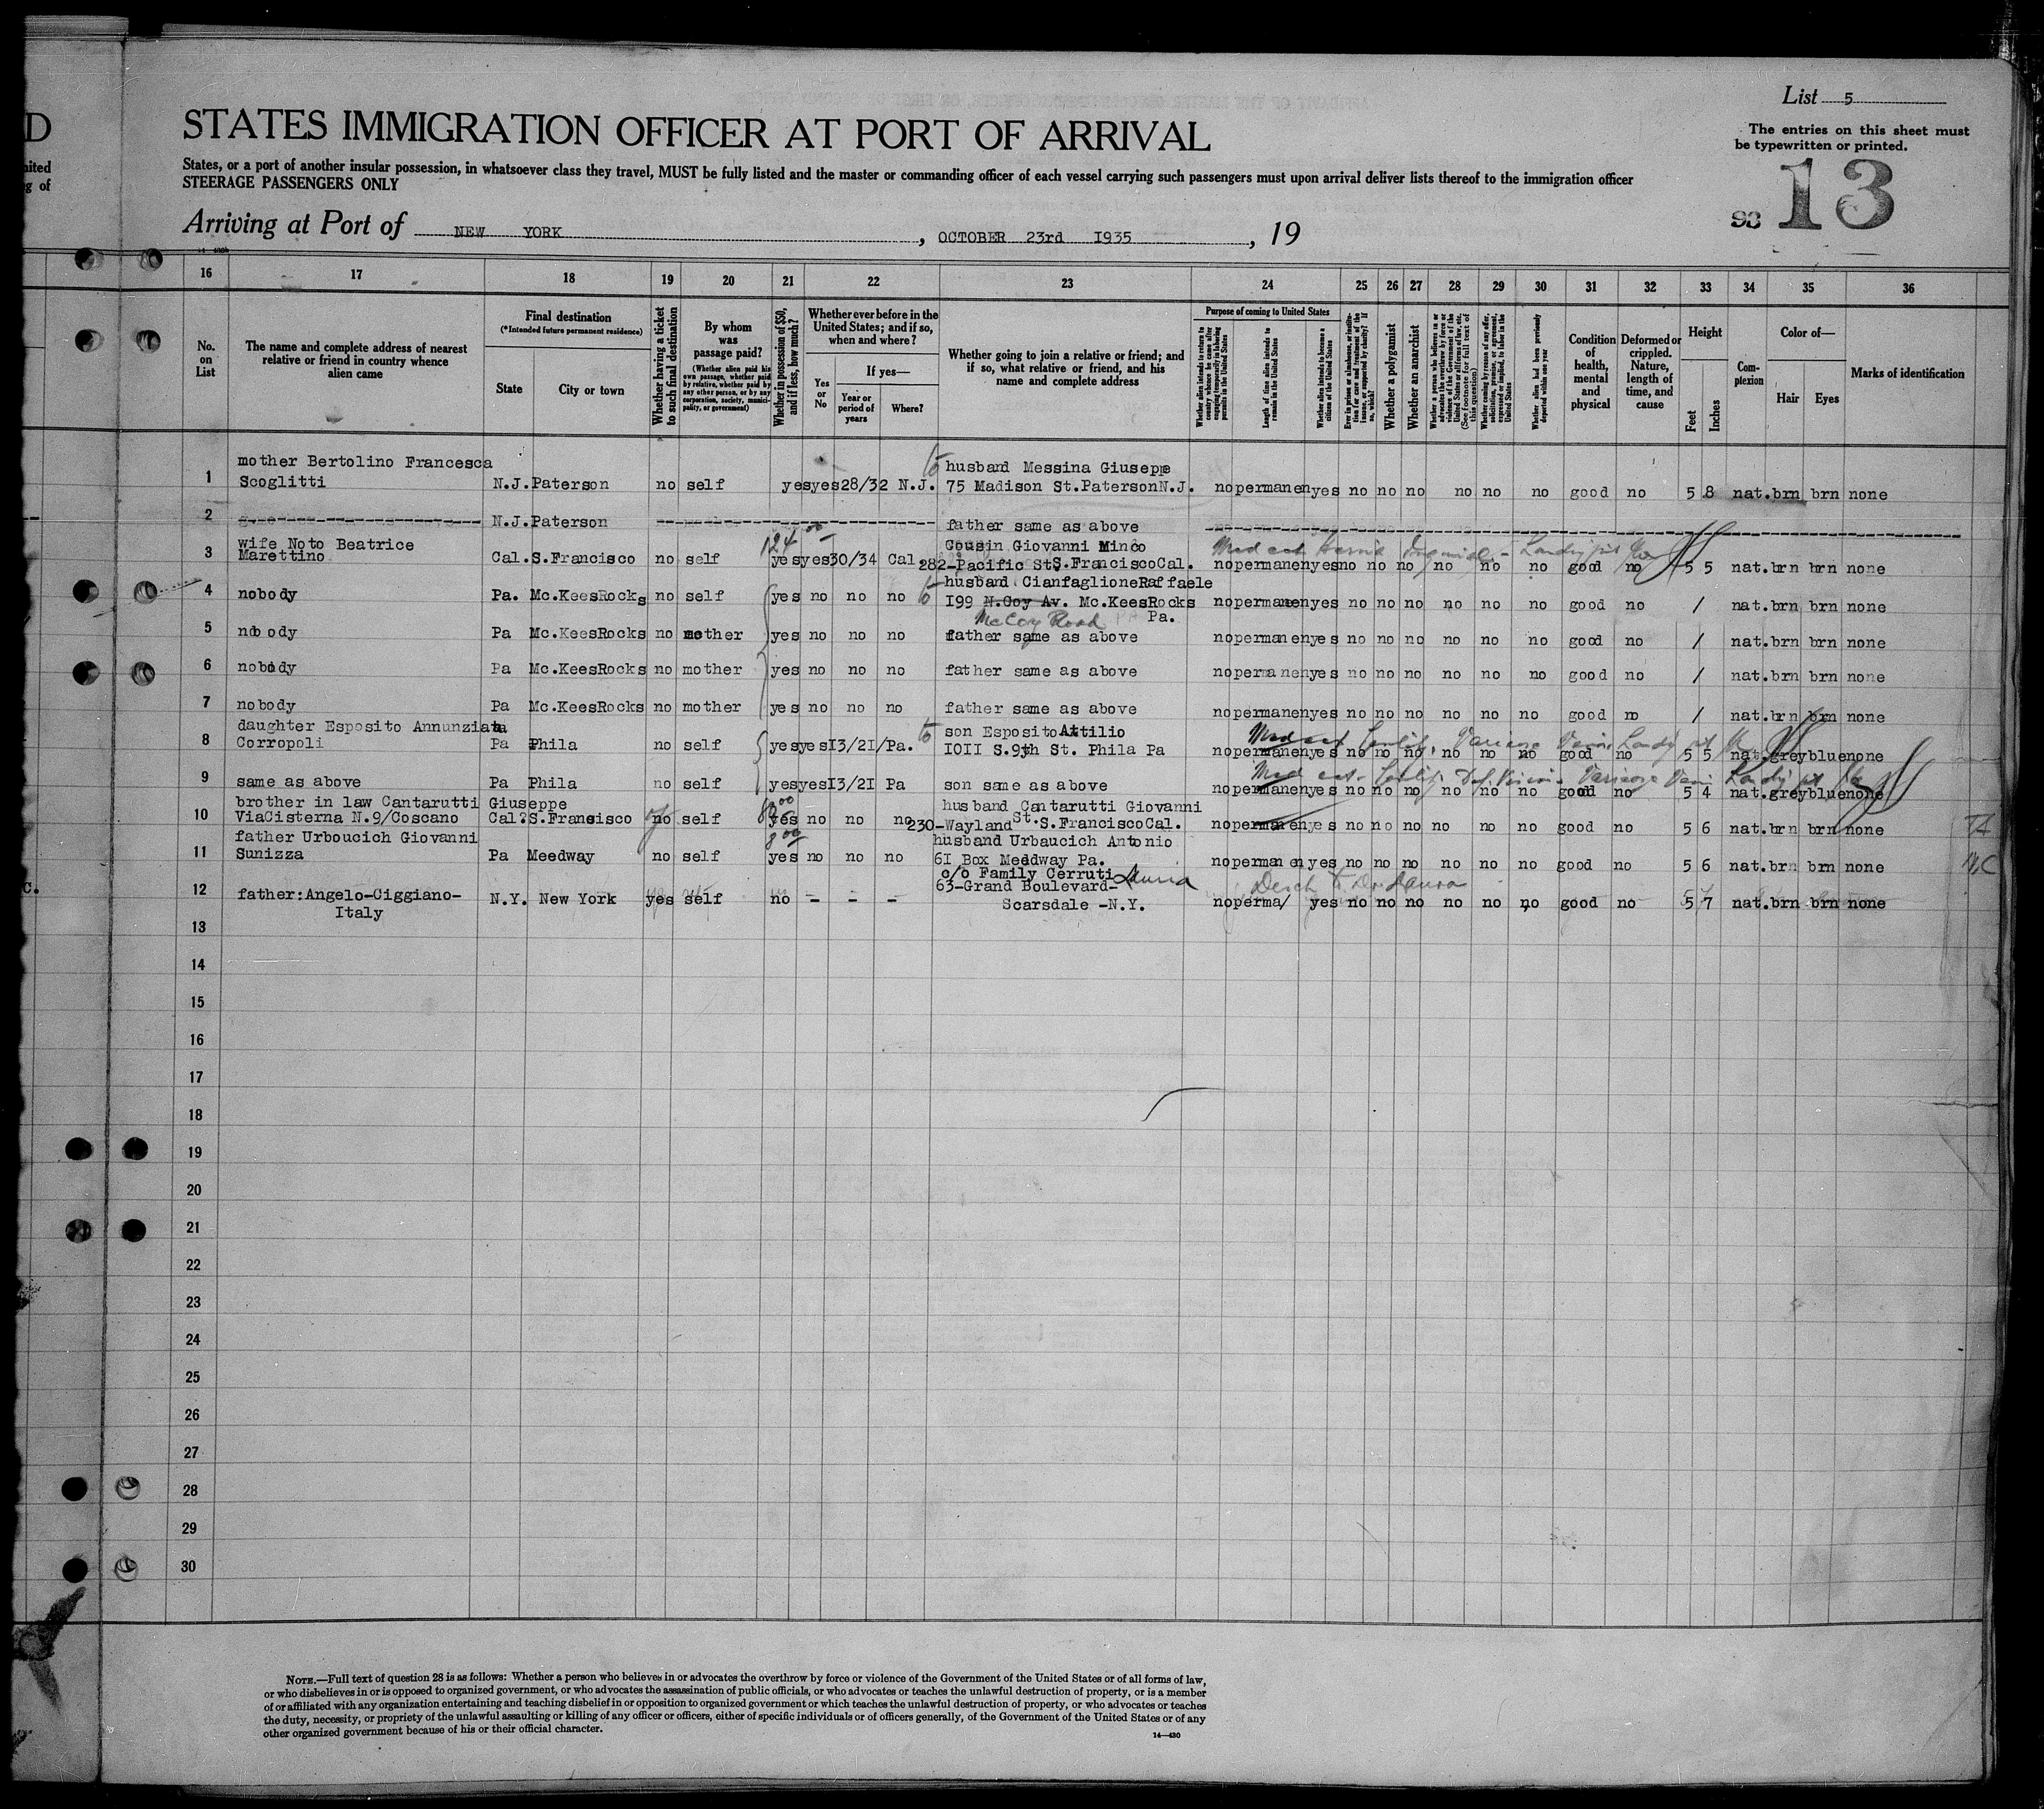 List 5
D
STATES IMMIGRATION OFFICER AT PORT OF ARRIVAL
The entries on this sheet must
be typewritten or printed.
13
93
States, or a port of another insular possession, in whatsoever class they travel, MUST be fully listed and the master or commanding officer of each vessel carrying such passengers must upon arrival deliver lists thereof to the immigration officer
STEERAGE PASSENGERS ONLY
Arriving at Port of NEW YORK, OCTOBER 23rd I935, 19
16 17 18 19 20 21 22 23 24 25 26 27 28 29 30 31 32 33 34 35 36
No. on List
The name and complete address of nearest relative or friend in country whence alien came
Final destination
(*Intended future permanent residence)
State
City or town
Whether having a ticket to such final destination
By whom was passage paid?
(Whether alien paid his own passage, whether paid by relative, whether paid by any other person, or by any corporation, society, municipality, or government)
Whether in possession of $50, and if less, how much?
Whether ever before in the United States; and if so, when and where?
Yes or No
If yes—
Year or period of years
Where?
Whether going to join a relative or friend; and if so, what relative or friend, and his name and complete address
Purpose of coming to United States
Whether alien intends to return to country whence he came after engaging temporarily in laboring pursuits in the United States
Length of time alien intends to remain in the United States
Whether alien intends to become a citizen of the United States
Ever in prison or almshouse, or institution for care and treatment of the insane, or supported by charity? If so, which?
Whether a polygamist
Whether an anarchist
Whether a person who believes in or advocates the overthrow by force or violence of the Government of the United States or all forms of law, etc. (See footnote for full text of this question)
Whether coming by reason of any offer, solicitation, promise, or agreement, expressed or implied, to labor in the United States
Whether alien had been previously deported within one year
Condition of health, mental and physical
Deformed or crippled. Nature, length of time, and cause
Height
Feet
Inches
Complexion
Color of—
Hair
Eyes
Marks of identification
mother Bertolino Francesca to husband Messina Giusepp
1 Scoglitti N.J. Paterson no self yes yes 28/32 N.J. 75 Madison St. Paterson N.J. no permanen yes no no no no no no good no 5 8 nat. brn brn none
2 N.J. Paterson father same as above
wife Noto Beatrice 124 00 Cousin Giovanni Minco
3 Marettino Cal. S.Francisco no self yes yes 30/34 Cal. 282-Pacific St. S.Francisco Cal. no permanen yes no no no no no no good no 5 5 nat. brn brn none
to husband Cianfaglione Raffaele
4 nobody Pa. Mc.KeesRocks no self yes no no no I99 N.Coy Av. Mc.KeesRocks no permanen yes no no no no no no good no / nat. brn brn none
McCoy Road Pa.
5 nobody Pa Mc.KeesRocks no mother yes no no no father same as above no permanen yes no no no no no no good no / nat. brn brn none
6 nobody Pa Mc.KeesRocks no mother yes no no no father same as above no permanen yes no no no no no no good no / nat. brn brn none
7 nobody Pa Mc.KeesRocks no mother yes no no no father same as above no permanen yes no no no no no no good no / nat. brn brn none
daughter Esposito Annunziata to son Esposito Attilio
8 Corropoli Pa Phila no self yes yes I3/2I/Pa. IOII S.9th St. Phila Pa no permanen yes no no no no no no good no 5 5 nat. grey blue none
9 same as above Pa Phila no self yes yes I3/2I Pa son same as above no permanen yes no no no no no no good no 5 4 nat. grey blue none
brother in law Cantarutti Giuseppe husband Cantarutti Giovanni
10 ViaCisterna N.9/Coscano Cal. S.Fransisco no self yes no no no 230-Wayland St. S.Francisco Cal. no permanen yes no no no no no no good no 5 6 nat. brn brn none
father Urboucich Giovanni 8 00 husband Urbaucich Antonio
11 Sunizza Pa Meedway no self yes no no no 6I Box Meddway Pa. no permanen yes no no no no no no good no 5 6 nat. brn brn none
c/o Family Cerruti
12 father: Angelo-Ciggiano- N.Y. New York yes self no - - - 63-Grand Boulevard- no perma/ yes no no no no no no good no 5 7 nat. brn brn none
Italy Scarsdale -N.Y.
13
14
15
16
17
18
19
20
21
22
23
24
25
26
27
28
29
30
NOTE.—Full text of question 28 is as follows: Whether a person who believes in or advocates the overthrow by force or violence of the Government of the United States or of all forms of law,
or who disbelieves in or is opposed to organized government, or who advocates the assassination of public officials, or who advocates or teaches the unlawful destruction of property, or is a member
of or affiliated with any organization entertaining and teaching disbelief in or opposition to organized government or which teaches the unlawful destruction of property, or who advocates or teaches
the duty, necessity, or propriety of the unlawful assaulting or killing of any officer or officers, either of specific individuals or of officers generally, of the Government of the United States or of any
other organized government because of his or their official character.
14—430